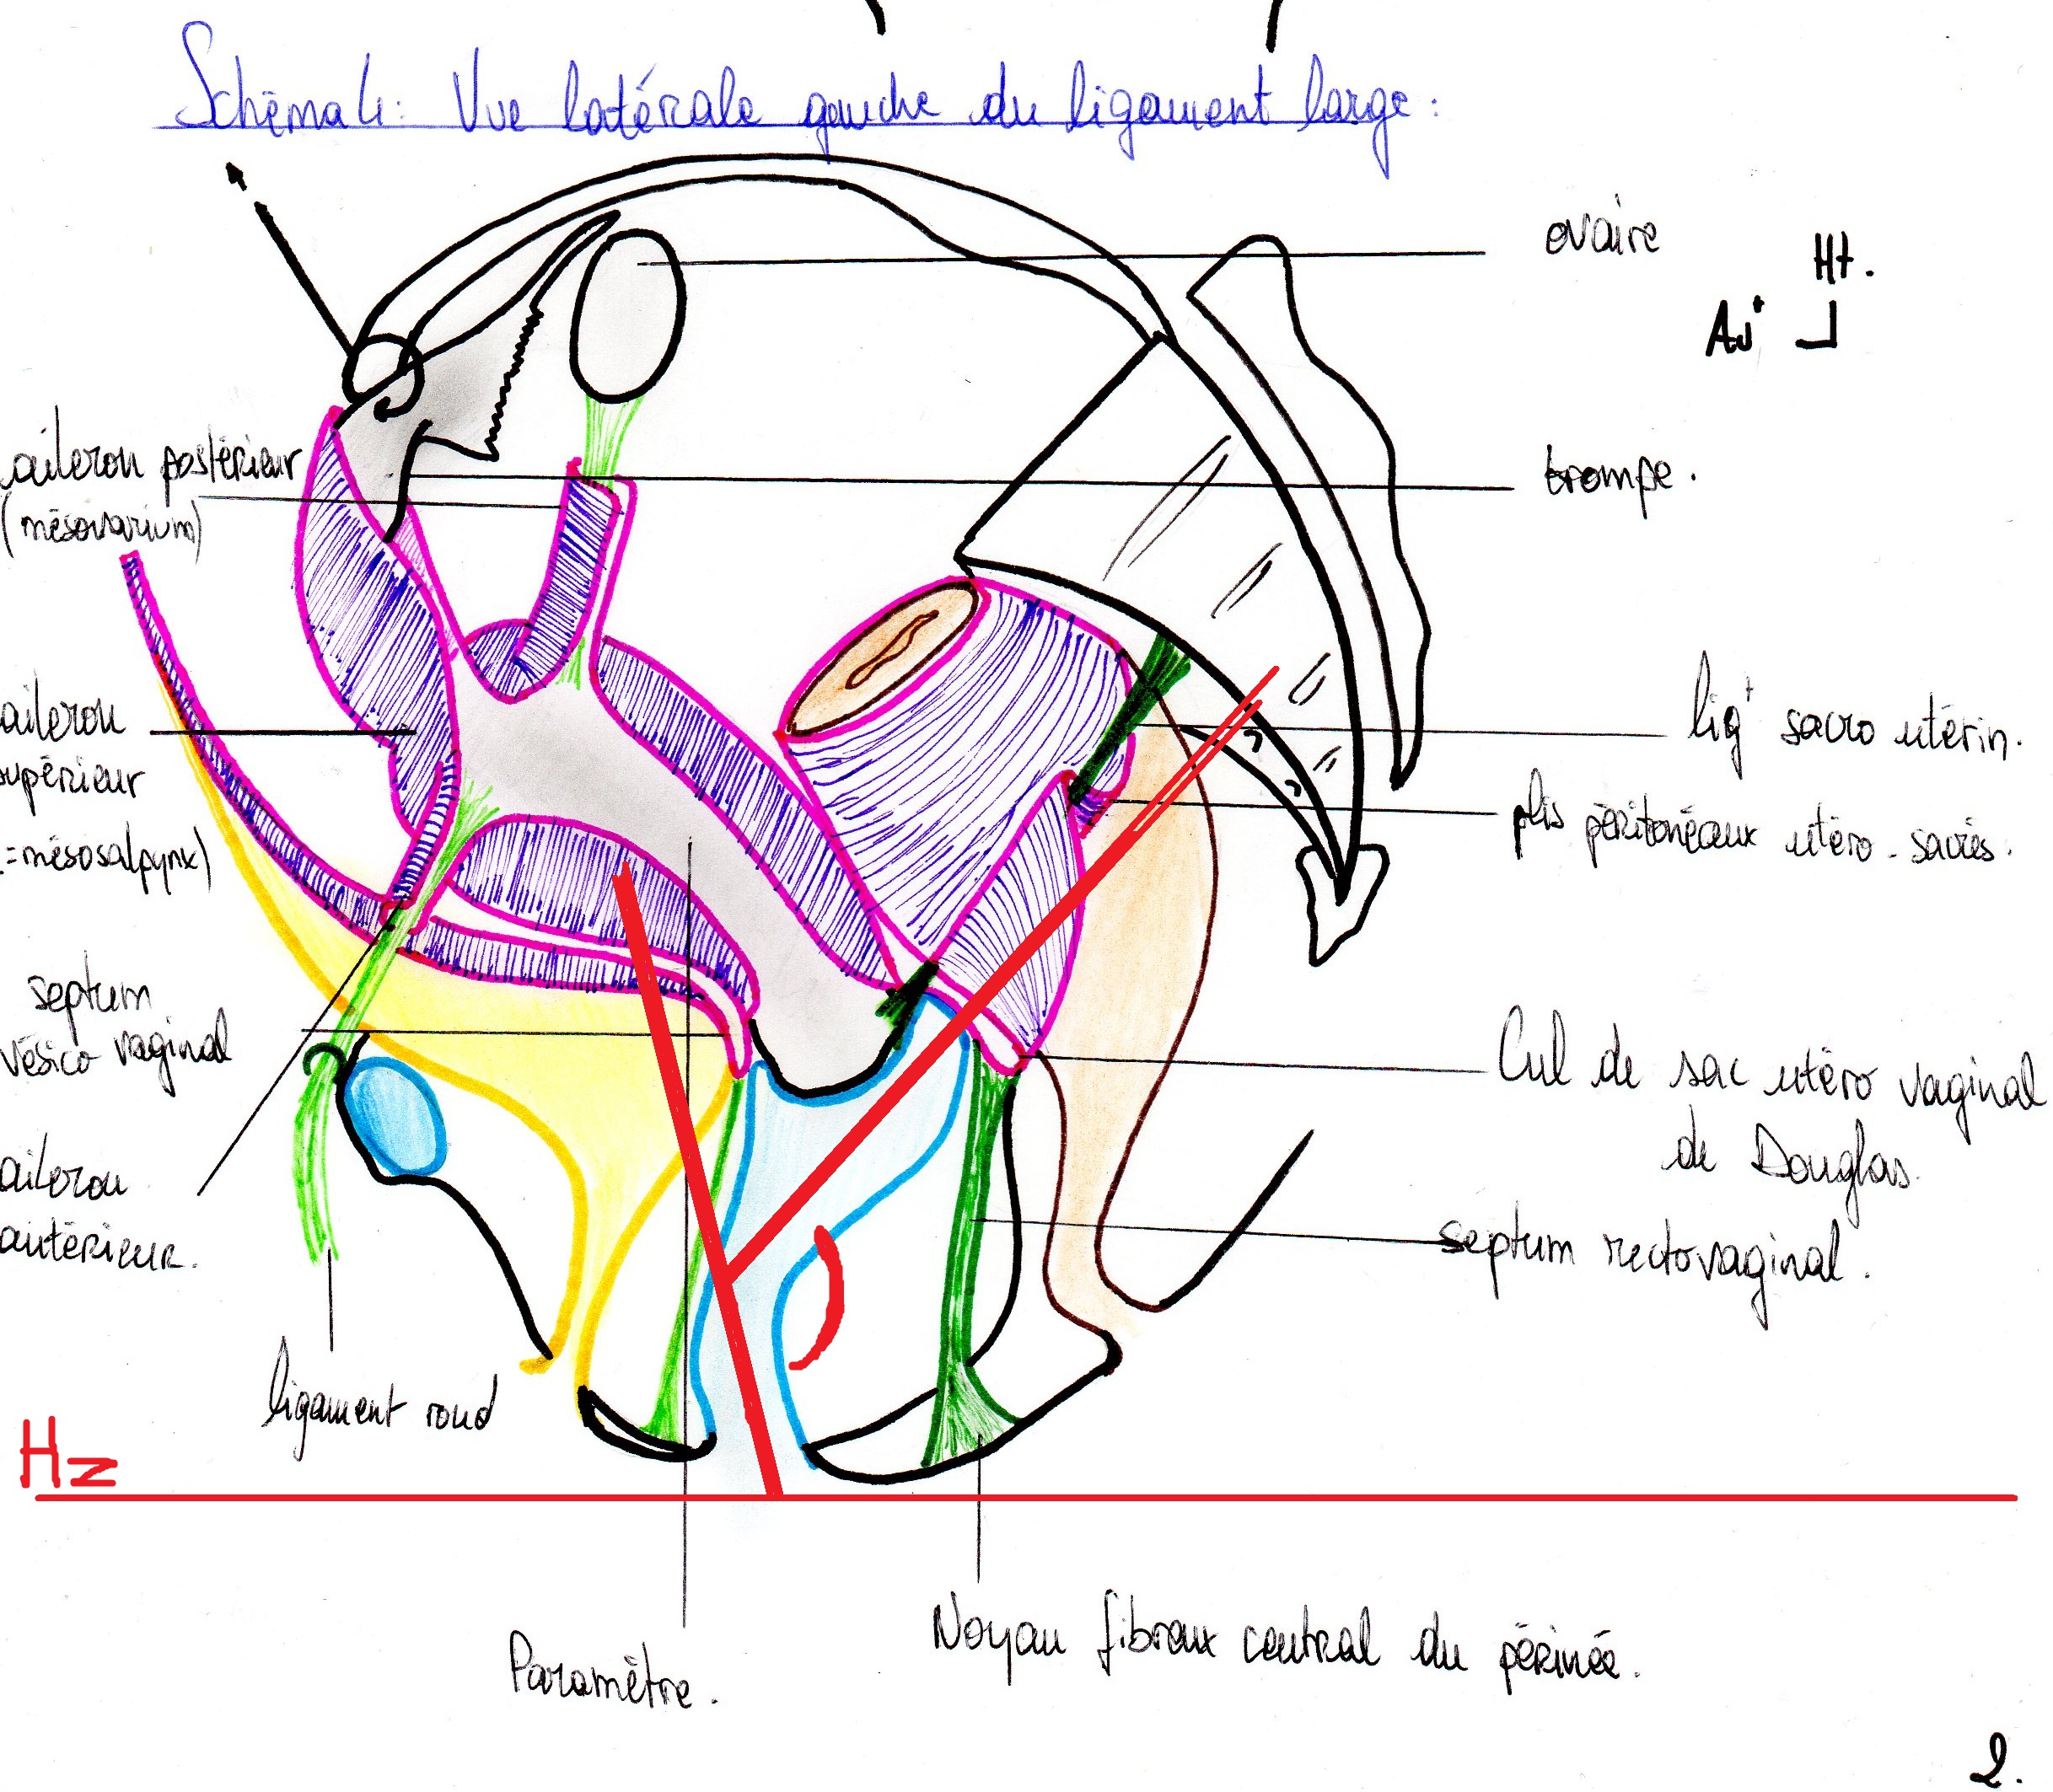 Schéma 4: Vue latérale gauche du ligament large:
ovaire
Ht.
Avt
trompe.
aileron postérieur
(mésovarium)
aileron
supérieur
(=mésosalpynx)
ligt sacro utérin.
plis péritonéaux utéro-sacrés.
septum
vésico vaginal
Cul de sac utéro vaginal
de Douglas.
aileron
antérieur.
septum rectovaginal.
ligament rond
Hz
Paramètre.
Noyau fibreux central du périnée.
2.